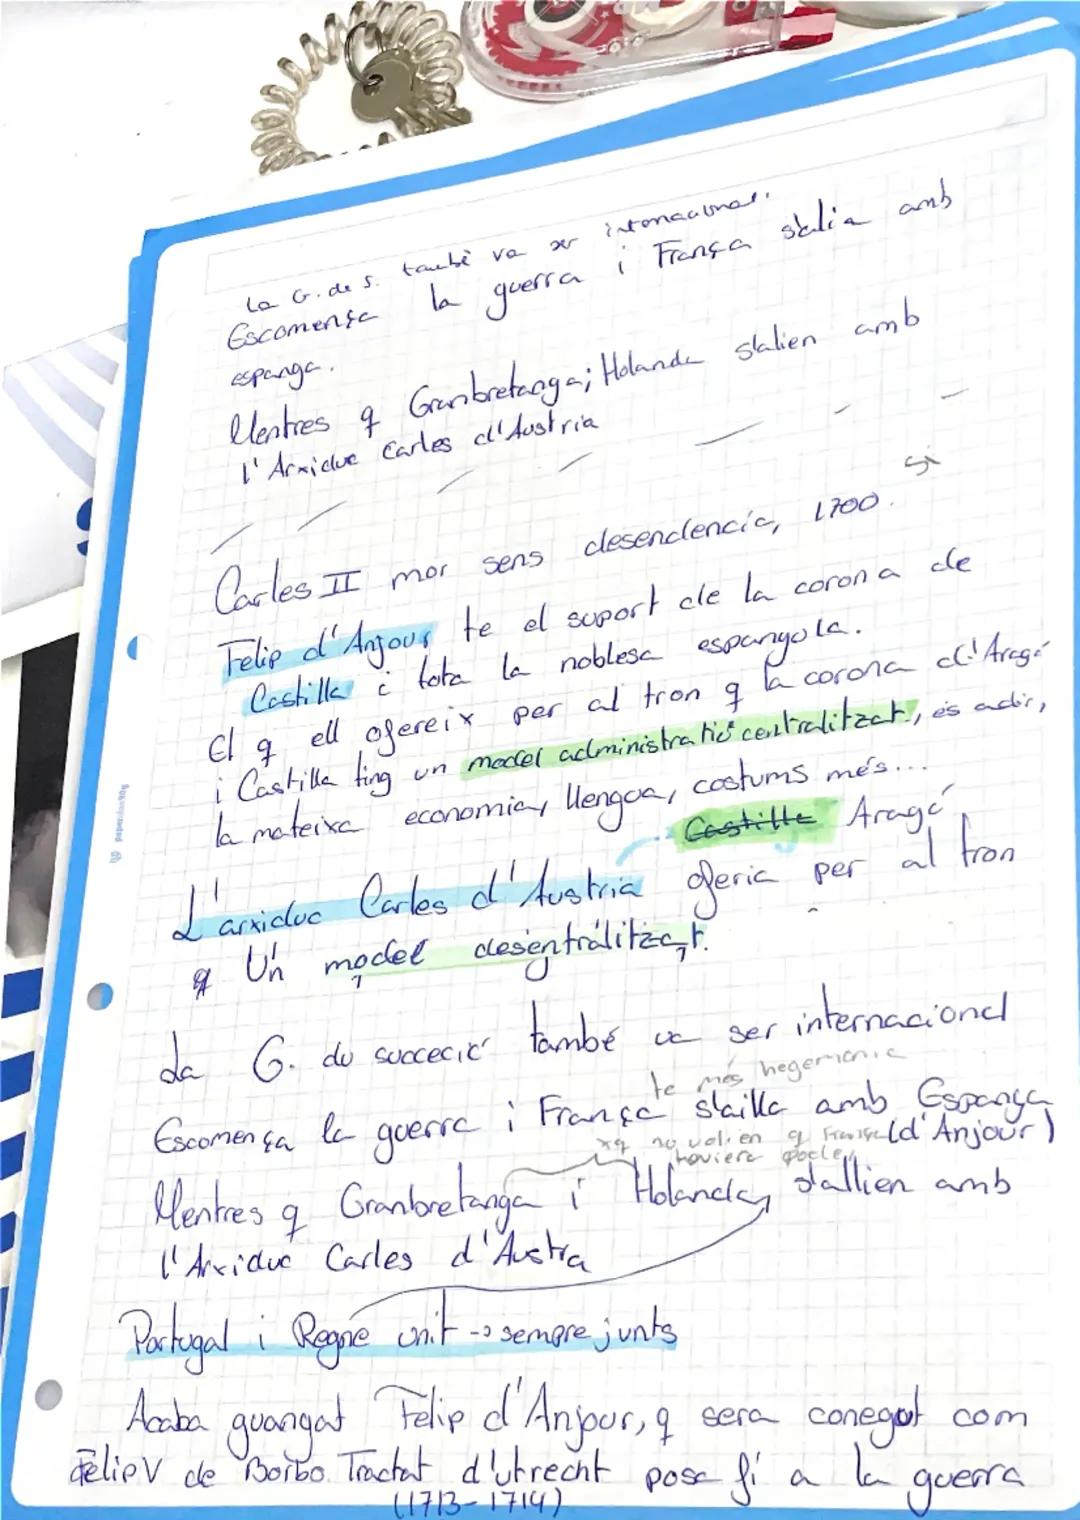 La G. de s. també va ser internacional.
Escomença la guerra i França s'alia amb
espanga.
Mentres q Granbretanga; Holanda s'alien amb
l'Arxiduc Carles d'Austria
Carles II mor sens desendencia, 1700. Si
Felip d'Anjour te el suport de la corona de
Castilla i tota la noblesa espanyola.
El q ell ofereix per al tron q la corona d'Aragó
i Castilla ting un model administratió centralitzat, és adir,
la mateixa economia, llengua, costums més...
Castilla Aragó
L'arxiduc Carles d'Austria oferia per al tron
q Un model desentralitzat.
La G. du succeció també va ser internacional
te més hegemonia
Escomença la guerra i França s'ailla amb Espanga
xq no volien q França (d'Anjour)
haviera poder
Mentres q Granbretanga i Holanda, s'allien amb
l'Arxiduc Carles d'Austra
Portugal i Regne unit -> sempre junts
Acaba guangat Felip d'Anjour, q sera conegut com
Felip V de Borbo. Tractat d'utrecht posa fi a la guerra
(1713-1714)
paper 90g